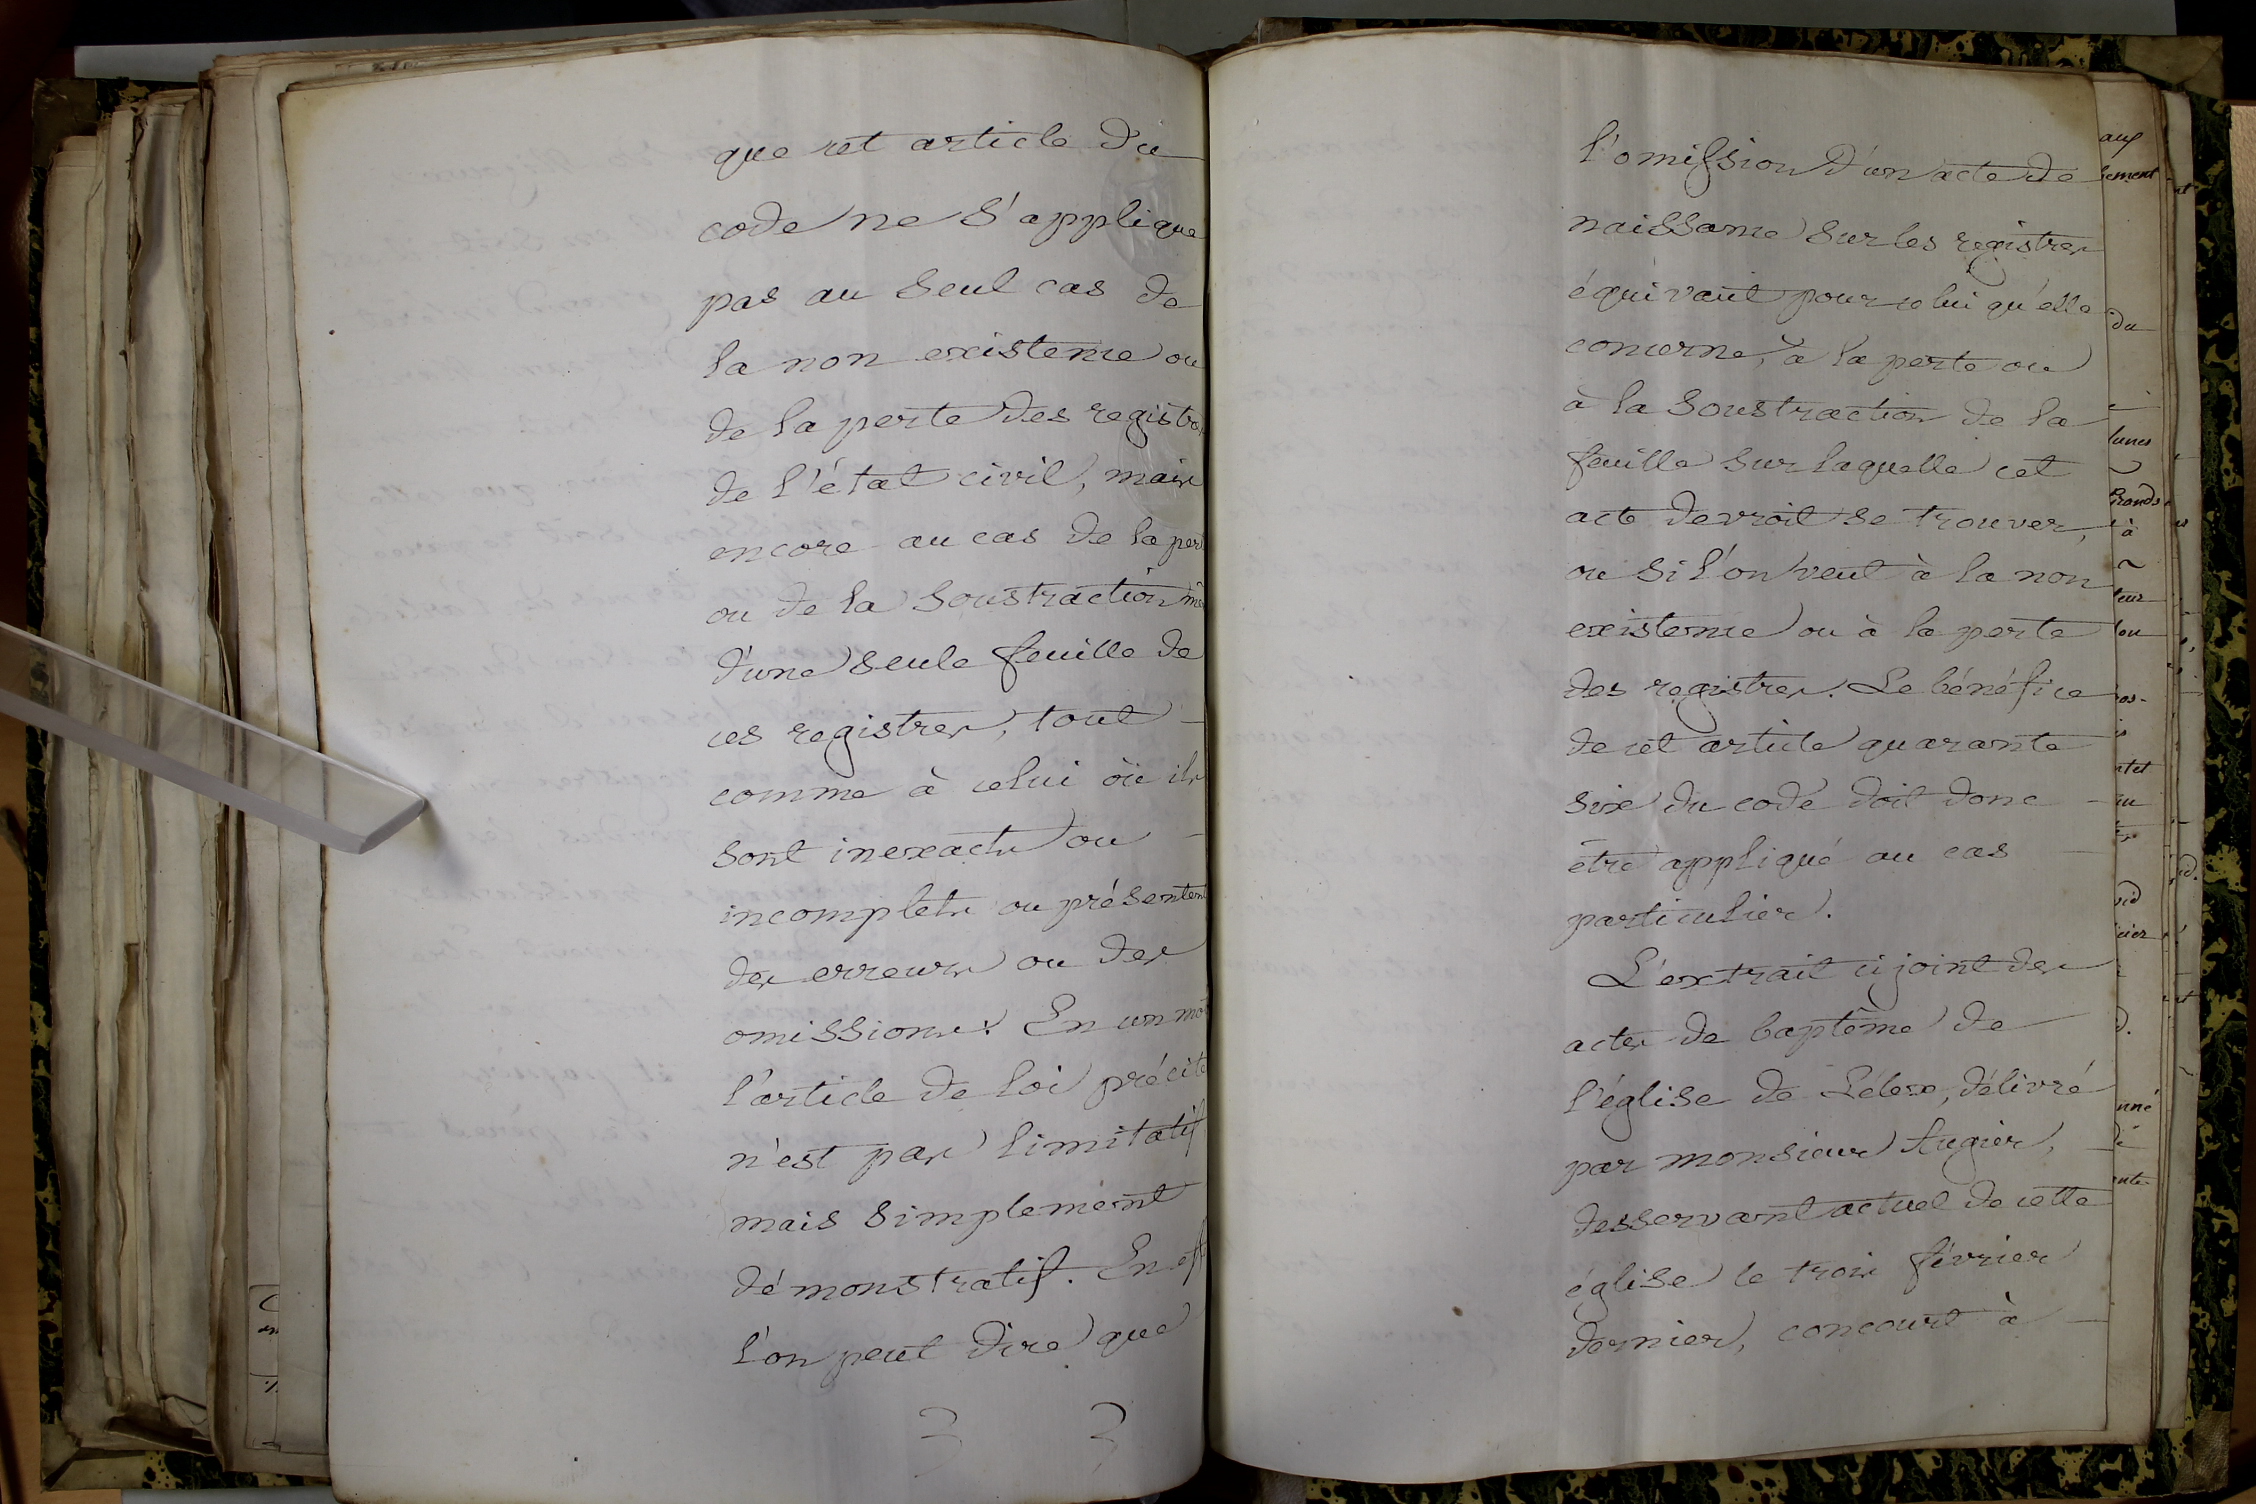 que cet article du
code ne s'applique
pas au seul cas de
la non existence ou
de la perte des registres
de l'état civil, mais
encore au cas de la per
ou de la soustraction mê
d'une seule feuille de
ces registres, tout
comme à celui où ils
sont inexacts ou
incomplets ou présentent
des erreurs ou des
omissions. En un mot
l'article de loi précité
n'est pas limitatif
mais simplement
démonstratif. En eff
l'on peut dire que
l'omission d'un acte de
naissance sur les registres
équivaut pour celui qu'elle
concerne, à la perte ou
à la soustraction de la
feuille sur laquelle cet
acte devroit se trouver,
ou si l'on veut à la non
existence ou à la perte
des registres. Le bénéfice
de cet article quarante
six du code doit donc
être appliqué au cas
particulier.
L'extrait ci joint des
actes de baptême de
l'église de Lélex, délivré
par monsieur Augier,
desservant actuel de cette
église le trois février
dernier, concourt à
aux
bement
du
lunes
à
teur
ou
au
vid
d.
nné